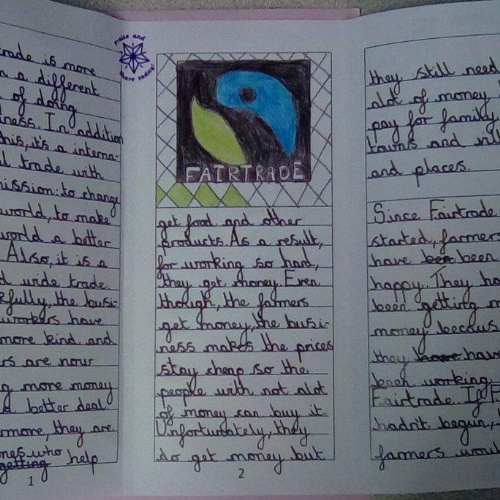 trade is more
a different
of doing
ness. In addition
this, it's a interna-
l trade with
mission: to change
world, to make
world a better
Also, it is a
d wide trade.
kfully, the busi-
workers have
more kind and
rs are now
g more money
d better deal
more, they are
ones who
getting help
1
FAIRTRADE
get food and other
products. As a result,
for working so hard,
they got money. Even
though, the farmers
get money, the busi-
ness makes the prices
stay cheap so the
people with not alot
of money can buy it.
Unfortunately, they
do get money but
2
they still need
alot of money
pay for family,
towns and vill
and places.
Since Fairtrade
started, farmers
have been
happy. They ha
been getting m
money becaus
they have
been working
Fairtrade. If F
hadn't begun,
farmers woul